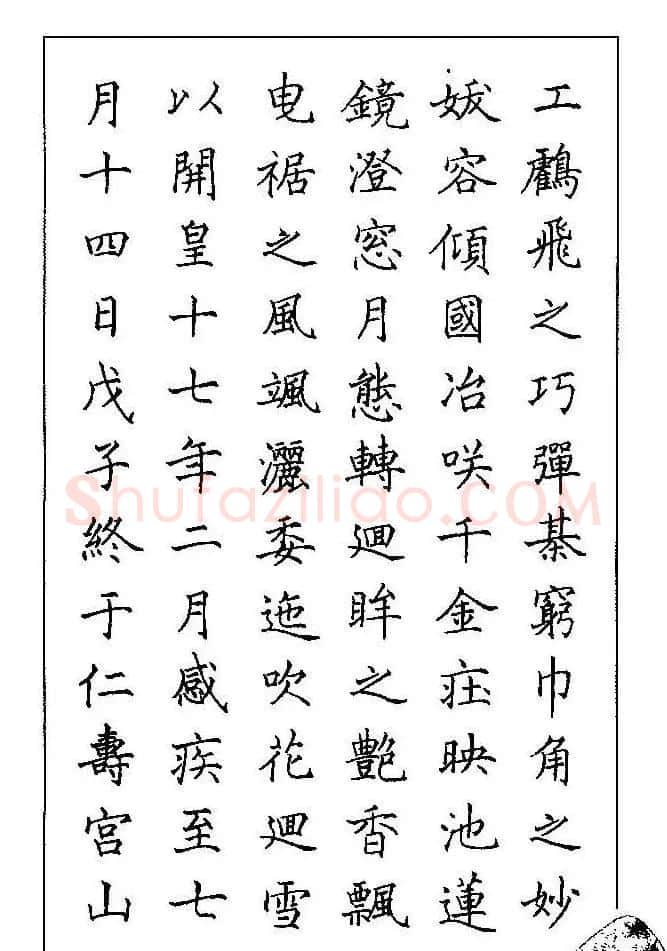 工鸖飛之巧彈棊窮巾角之妙
妭容傾國冶咲千金庒映池蓮
鏡澄窓月態轉迴眸之艶香飄
曳裾之風颯灑委迤吹花迴雪
以開皇十七年二月感疾至七
月十四日戊子終于仁壽宮山
Shufaziliao.COM